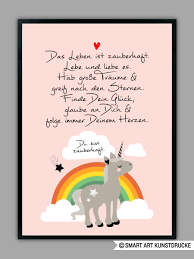 Das Leben ist zauberhaft.
Lebe und liebe es.
Hab große Träume &
greif nach den Sternen.
Finde Dein Glück,
glaube an Dich &
folge immer Deinem Herzen.
Du bist
zauberhaft.
© SMART ART KUNSTDRUCKE